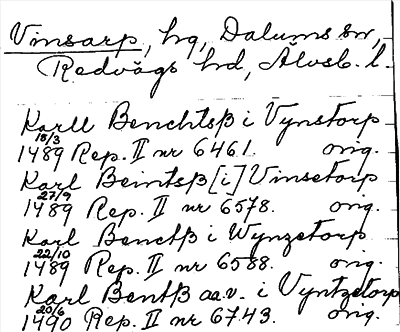 Vinsarp, hg, Dalums sn,
Redvägs hd, Älvsb. l.
Karll Benchtsß i Vynstorp
18/3 1489 Rep. II nr 6461. orig.
Karl Beintsß [i] Vinsetorp
27/9 1489 Rep. II nr 6578. orig.
Karl Benctß i Wynzetorp
22/10 1489 Rep. II nr 6588. orig.
Karl Bentß aa.v. i Vyntzetorp
20/6 1490 Rep. II nr 6743. orig.